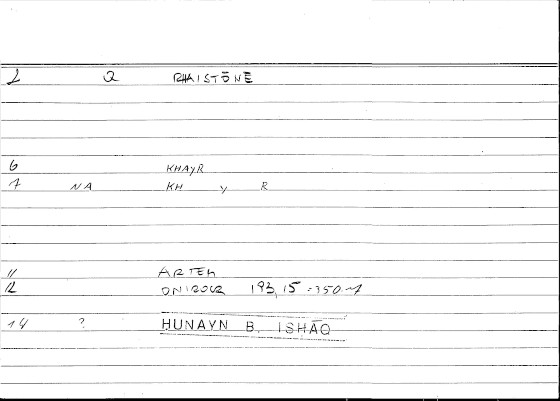 1 2 RHAISTŌNĒ
6 KHAYR
7 NA KH Y R
11 ARTEM
12 ONIROCR 193,15 = 350.1
14 ? HUNAYN B. ISHĀQ